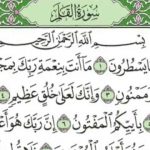 سُورَةُ القَلَم
بِسْمِ اللَّهِ الرَّحْمَٰنِ الرَّحِيمِ
يَسْطُرُونَ ١ مَا أَنتَ بِنِعْمَةِ رَبِّكَ
مَمْنُونٍ ٣ وَإِنَّكَ لَعَلَىٰ خُلُقٍ عَظِيمٍ ٤
بِأَييِّكُمُ الْمَفْتُونُ ٦ إِنَّ رَبَّكَ هُوَ